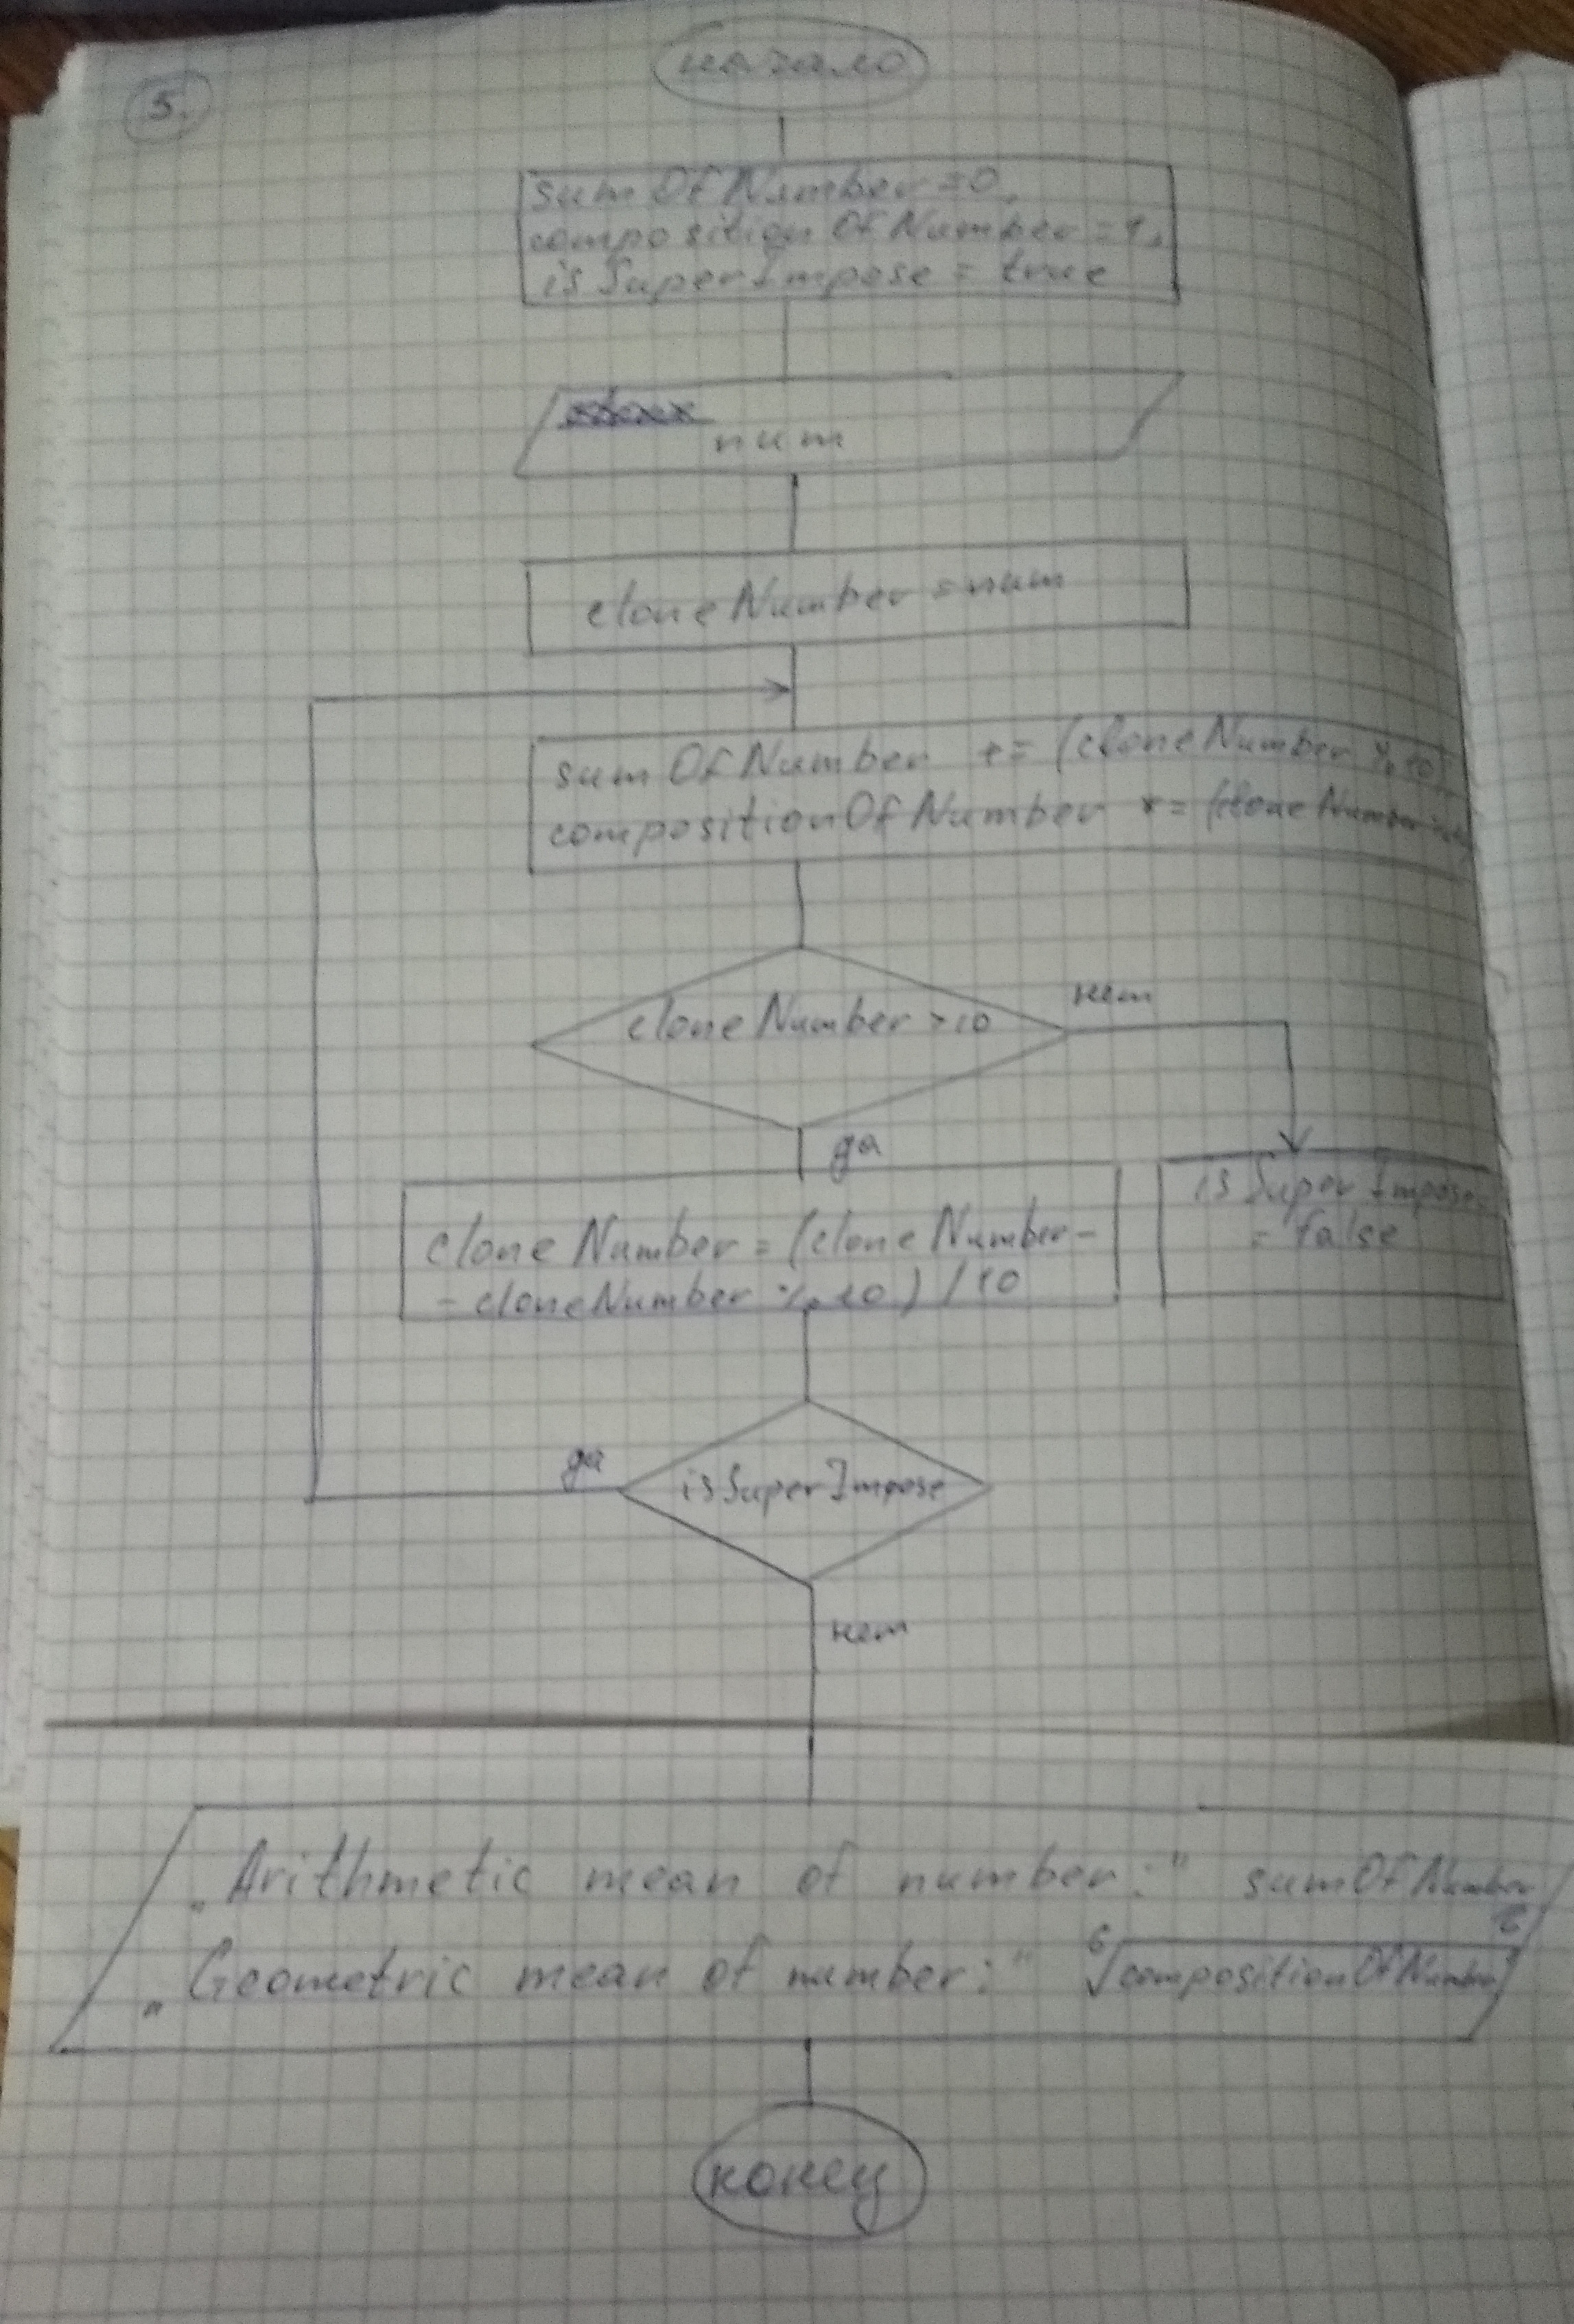 5.
начало
sumOfNumber = 0,
compositionOfNumber = 1,
isSuperImpose = true
num
cloneNumber = num
sumOfNumber += (cloneNumber % 10)
compositionOfNumber *= (cloneNumber
cloneNumber > 10
нет
да
cloneNumber = (cloneNumber -
- cloneNumber % 10) / 10
isSuperImpose =
= false
да
isSuperImpose
нет
„Arithmetic mean of number:" sumOfNumber
6
„Geometric mean of number:" 6√compositionOfNumber
конец